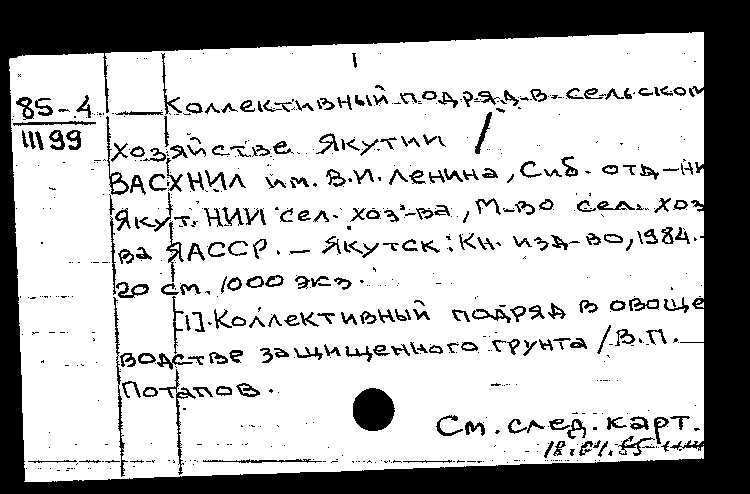 85-4
Ш99
Коллективный подряд в сельском
хозяйстве Якутии /
ВАСХНИЛ им. В.И. Ленина, Сиб. отд-ни
Якут. НИИ сел. хоз-ва, М-во сел. хоз
ва ЯАССР. – Якутск: Кн. изд-во, 1984.-
20 см. 1000 экз.
[1]. Коллективный подряд в овоще
водстве защищенного грунта / В.П.
Потапов.
См. след. карт.
18.04.85